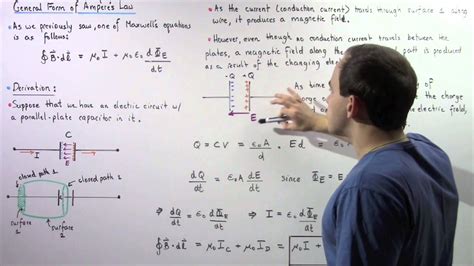 General Form of Ampere's Law
• As we previously saw, one of Maxwell's equations
is as follows:
∮B⃗·dℓ⃗ = μ₀I + μ₀ε₀ dΦE/dt
• Derivation:
• Suppose that we have an electric circuit w/
a parallel-plate capacitor in it.
C
I
E
closed path 1
closed path 1
surface 1
surface 2
• As the current (conduction current) travels through surface 1 along
wire, it produces a magnetic field.
• However, even though no conduction current travels between the
plates, a magnetic field along the path is produced
as a result of the changing
-Q +Q
E
As time
the charge
charge
electric field,
Q = CV = ε₀A/d · Ed = ε₀
dQ/dt = ε₀A dE/dt since ΦE =
⇒ dQ/dt = ε₀ dΦE/dt ⇒ I = ε₀ dΦE/dt
∮B⃗·dℓ⃗ = μ₀IC + μ₀ID = μ₀I +